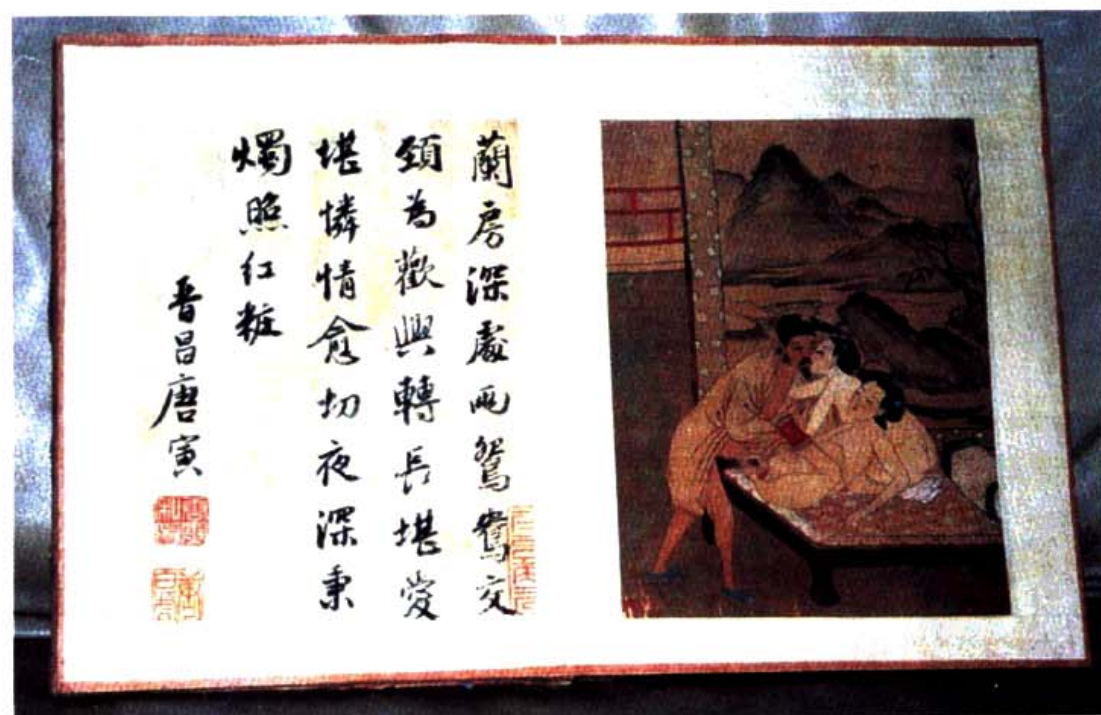 蘭房深處兩鴛鴦交
頸為歡興轉長堪愛
堪憐情愈切夜深秉
燭照紅粧
晉昌唐寅